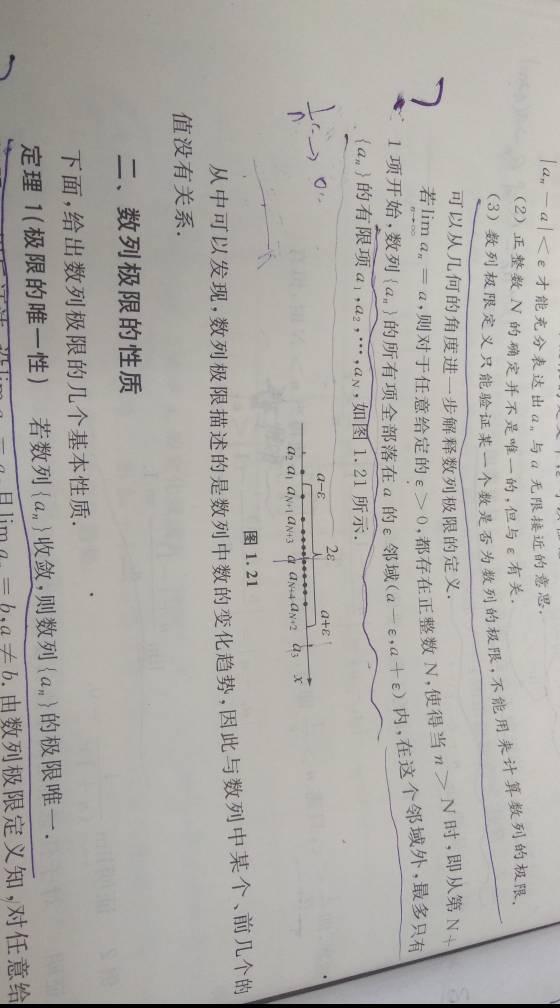 |aₙ-a|<ε才能充分表达出aₙ与a无限接近的意思.
(2) 正整数N的确定并不是唯一的,但与ε有关.
(3) 数列极限定义只能验证某一个数是否为数列的极限,不能用来计算数列的极限.
可以从几何的角度进一步解释数列极限的定义.
若lim aₙ=a,则对于任意给定的ε>0,都存在正整数N,使得当n>N时,即从第N+
n→∞
1项开始,数列{aₙ}的所有项全部落在a的ε邻域(a-ε,a+ε)内,在这个邻域外,最多只有
{aₙ}的有限项a₁,a₂,…,a_N,如图1.21所示.
1/n → 0
2ε
a-ε a+ε
a₂ a₁ a_{N+1} a_{N+3} a a_{N+4} a_{N+2} a₃ x
图1.21
从中可以发现,数列极限描述的是数列中数的变化趋势,因此与数列中某个、前几个的
值没有关系.
二、数列极限的性质
下面,给出数列极限的几个基本性质.
定理1(极限的唯一性) 若数列{aₙ}收敛,则数列{aₙ}的极限唯一.
=a,且lim aₙ=b,a≠b.由数列极限定义知,对任意给